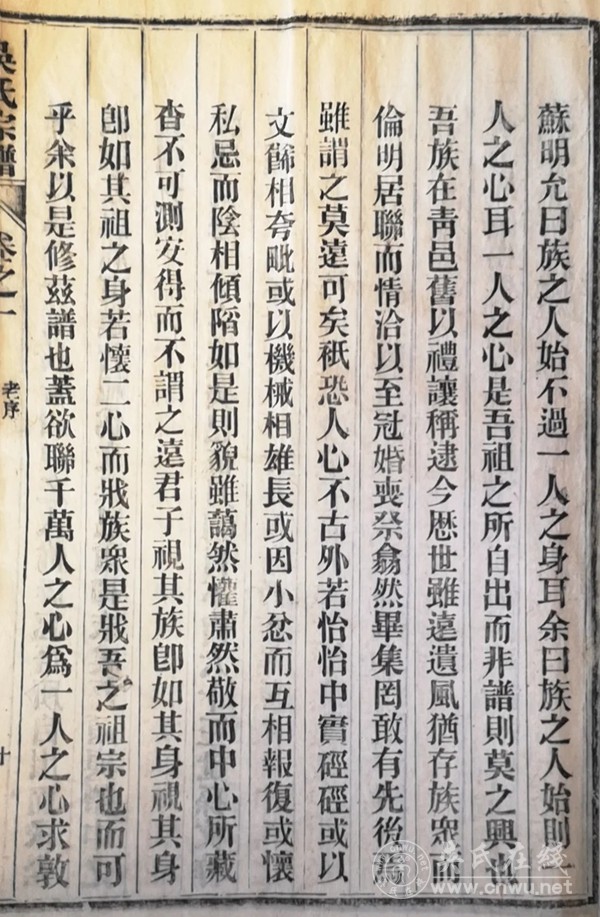 蘇明允曰族之人始不過一人之身耳余曰族之人始則一
人之心耳一人之心是吾祖之所自出而非譜則莫之興也
吾族在靑邑舊以禮讓稱逮今厯世雖遠遺風猶存族衆而
倫明居聯而情洽以至冠婚喪祭翕然畢集罔敢有先後焉
雖謂之莫遠可矣祇恐人心不古外若怡怡中實硜硜或以
文餙相夸毗或以機械相雄長或因小忿而互相報復或懷
私忌而陰相傾陷如是則貌雖藹然懽肅然敬而中心所藏
杳不可測安得而不謂之遠君子視其族卽如其身視其身
卽如其祖之身若懷二心而戕族衆是戕吾之祖宗也而可
乎余以是修茲譜也蓋欲聯千萬人之心爲一人之心求敦
吳氏宗譜
卷之一
老序
十
吴氏在线
www.cnwu.net